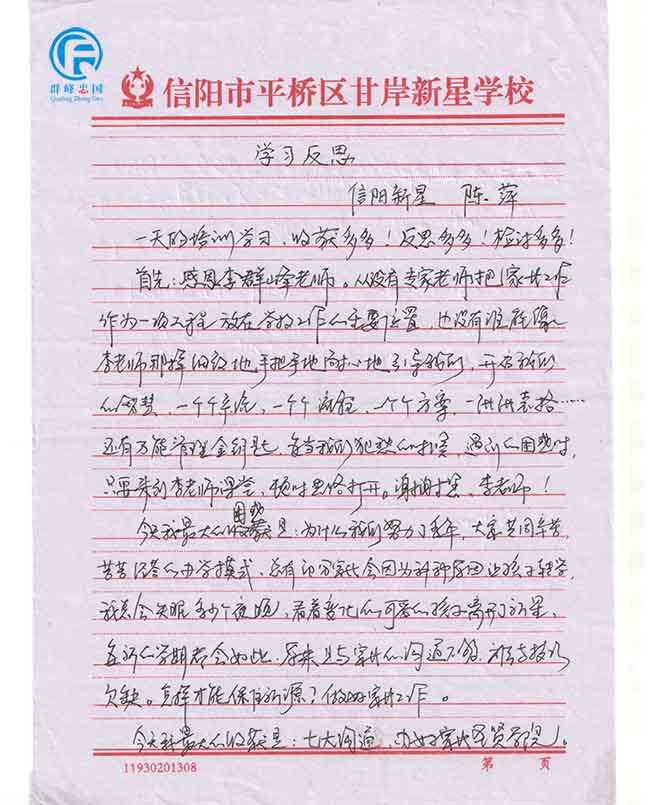 群峰忠国
Qunfeng Zhong Guo
信阳市平桥区甘岸新星学校
学习反思
信阳新星 陈萍
一天的培训学习,收获多多!反思多多!检讨多多!
首先:感恩李群峰老师。从没有专家老师把家长工作
作为一项工程放在学校工作的重要位置,也没有谁能像
李老师那样细致地手把手地耐心地引导我们,开启我们
的智慧,一个个案例,一个个流程,一个个方案,一张张表格……
还有万能管理金钥匙,每当我们犯愁的时候,遇到的困惑时,
只要来到李老师课堂,顿时思路打开。谢谢您,李老师!
今天我最大的困惑是:为什么我们努力了多年,大家共同辛苦
苦苦经营的办学模式,总有部分家长会因为种种原因让孩子转学,
我总会失眠多少个夜晚,看着变化的可爱的孩子离开新星,
每新的学期都会如此,原来是与家长的沟通不够,
欠缺。怎样才能保住新源?做好家长工作。
今天我最大的收获是:七大沟通,办好家长
11930201308 第 页